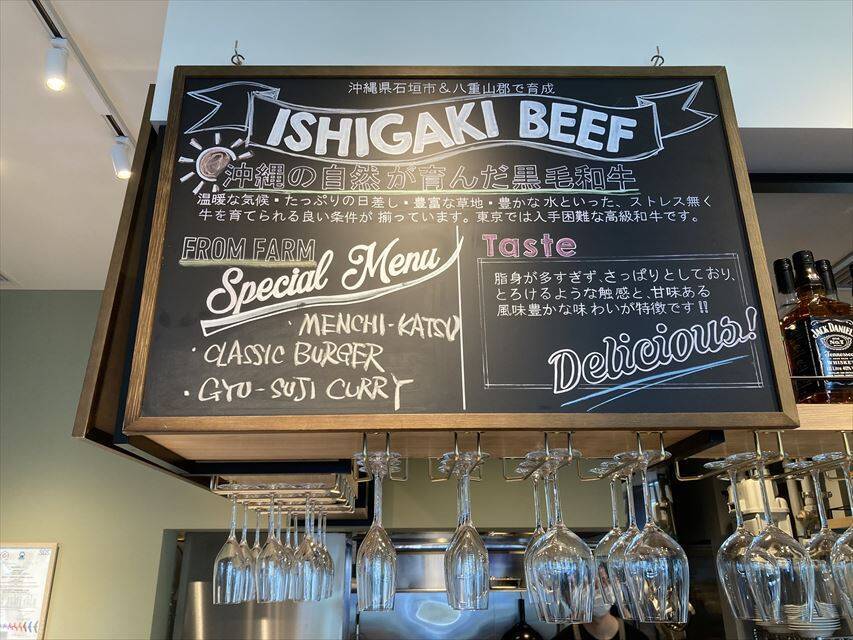 沖縄県石垣市&八重山郡で育成
ISHIGAKI BEEF
沖縄の自然が育んだ黒毛和牛
温暖な気候・たっぷりの日差し・豊富な草地・豊かな水といった、ストレス無く
牛を育てられる良い条件が揃っています。東京では入手困難な高級和牛です。
FROM FARM
Special Menu
・MENCHI-KATSU
・CLASSIC BURGER
・GYU-SUJI CURRY
Taste
脂身が多すぎず、さっぱりとしており、
とろけるような触感と、甘味ある
風味豊かな味わいが特徴です!!
Delicious!
JACK DANIEL'S
Tennessee
WHISKEY